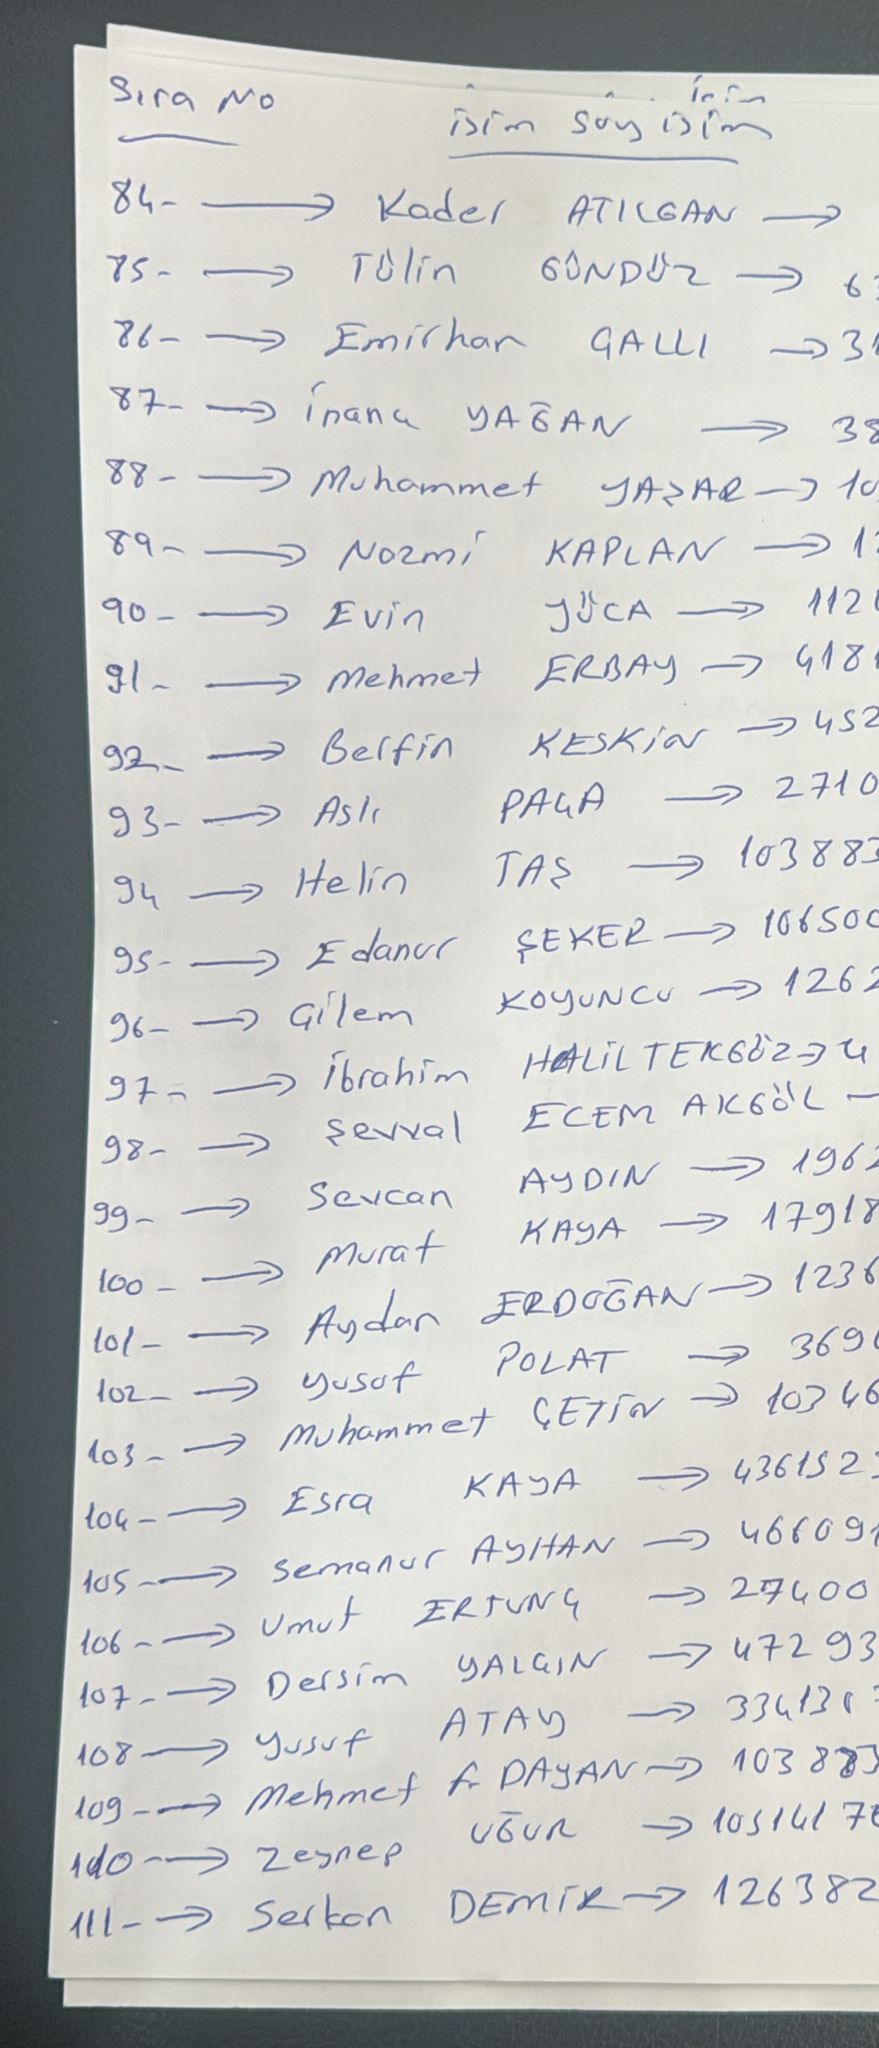 Sıra No
isim Soy isim
84- → Kader ATILGAN →
85- → Tülin GÜNDÜZ → 63
86- → Emirhan GALLI → 31
87- → İnanç YAĞAN → 38
88- → Muhammet YAŞAR → 10
89- → Nazmi KAPLAN → 12
90- → Evin YÜCA → 1120
91- → Mehmet ERBAY → 4181
92- → Berfin KESKİN → 452
93- → Aslı PAÇA → 2710
94 → Helin TAŞ → 103883
95- → Edanur ŞEKER → 106500
96- → Çilem KOYUNCU → 1262
97- → İbrahim HALİL TEKGÖZ → 4
98- → Şevval ECEM AKGÖL –
99- → Sevcan AYDIN → 1962
100- → Murat KAYA → 17918
101- → Aydan ERDOĞAN → 1236
102- → Yusuf POLAT → 3690
103- → Muhammet ÇETİN → 10346
104- → Esra KAYA → 4361523
105- → Semanur AYHAN → 466091
106- → Umut ERTUNÇ → 27400
107- → Dersim YALÇIN → 47293
108 → Yusuf ATAY → 33413
109- → Mehmet A DAYAN → 103883
110- → Zeynep UĞUR → 1051417
111- → Serkan DEMİR → 126382